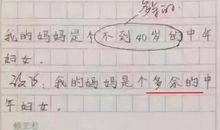 多余的
我的妈妈是个不到40岁的中年
妇女。
改: 我的妈妈是个多余的中
年妇女。